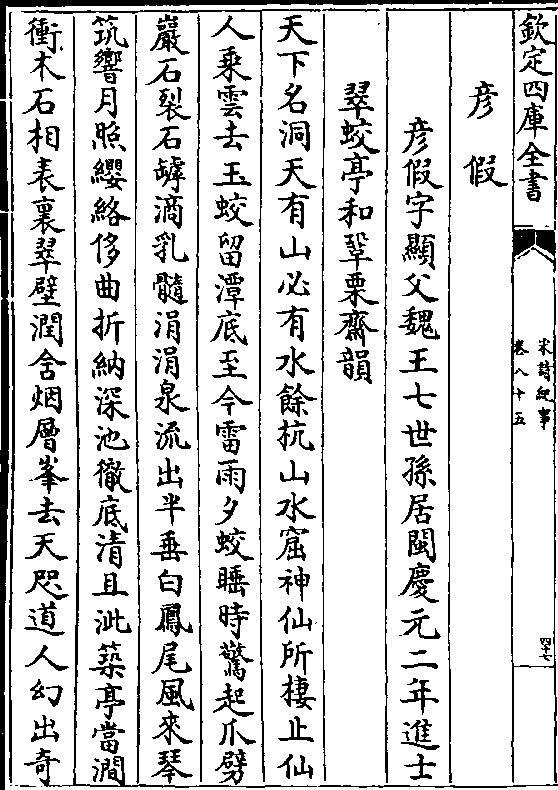 欽定四庫全書
宋詩紀事
卷八十五
四十七
彦假
彦假字顯父魏王七世孫居閩慶元二年進士
翠蛟亭和鞏栗齋韻
天下名洞天有山必有水餘杭山水窟神仙所棲止仙
人乘雲去玉蛟留潭底至今雷雨夕蛟睡時驚起爪劈
巖石裂石罅滴乳髓涓涓泉流出半垂白鳳尾風來琴
筑響月照纓絡侈曲折納深池徹底清且泚築亭當澗
衝木石相表裏翠壁潤含烟層峯去天咫道人幻出奇